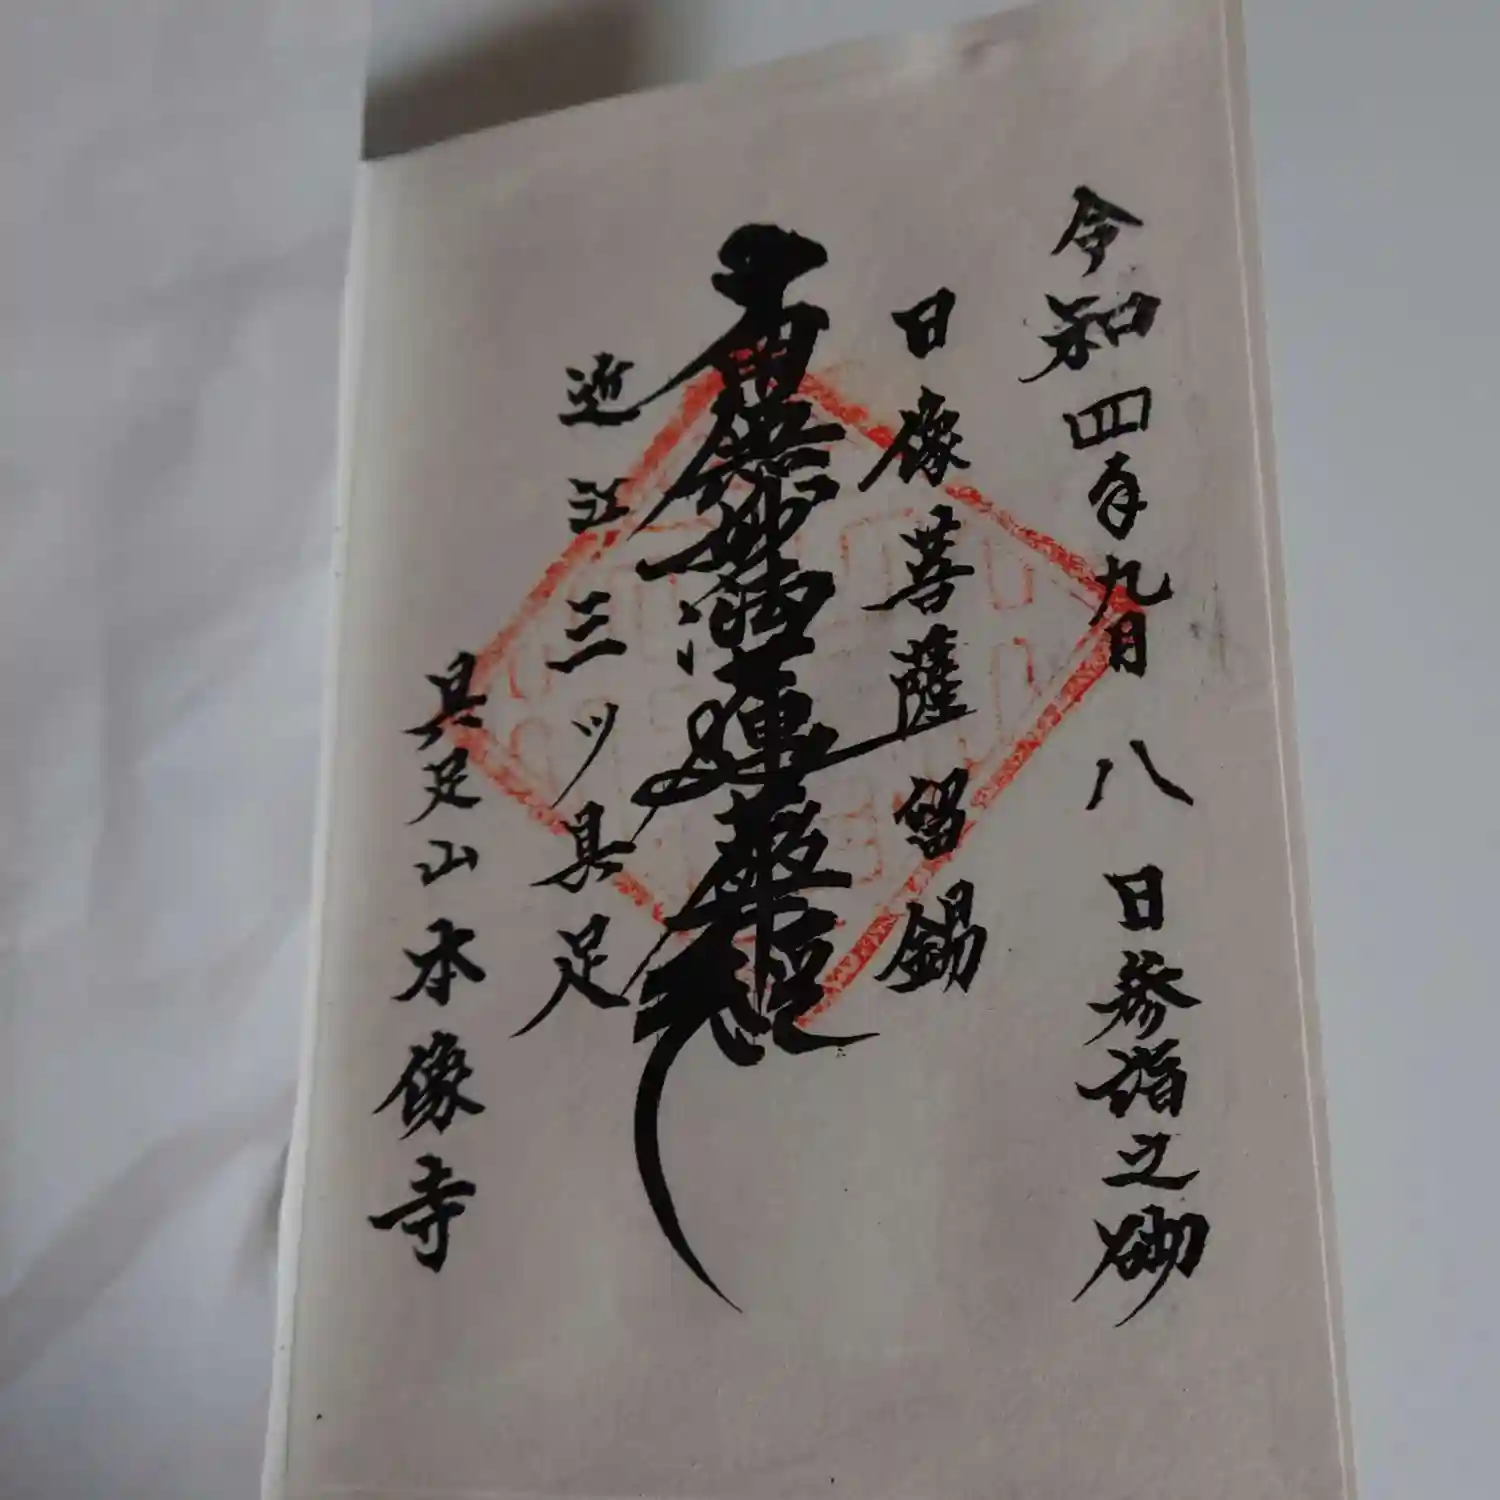 令和四年九月八日参詣之砌
日像菩薩留錫
南無妙法蓮華経
近江三ツ具足
具足山本像寺